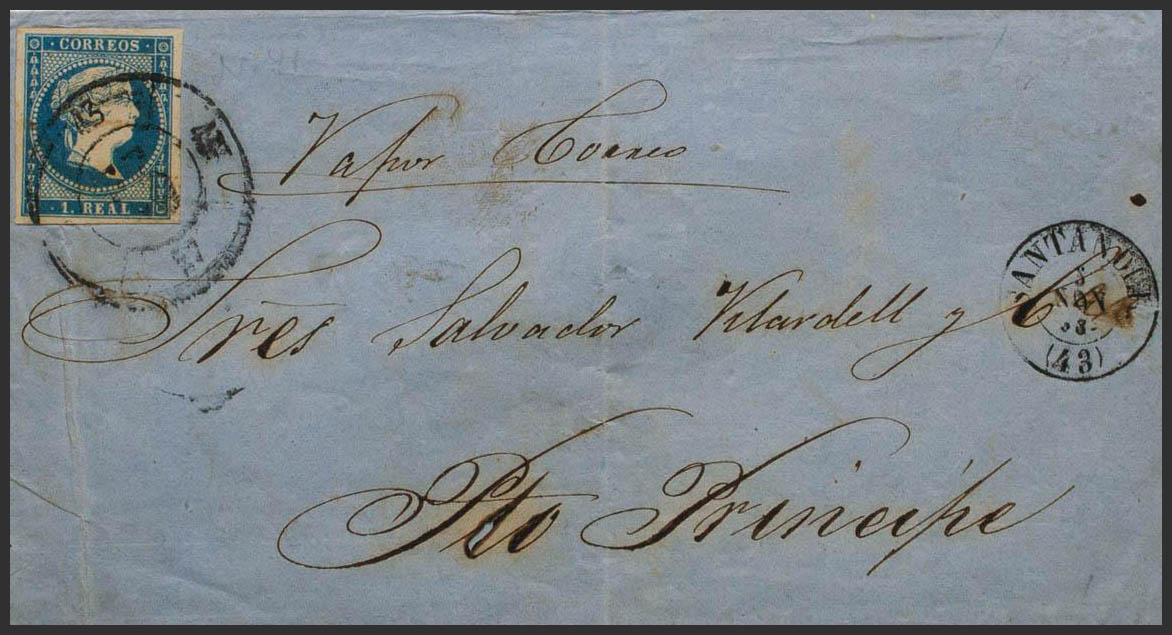 CORREOS
1. REAL
Vapor Correo
Sres Salvador Vilardell y C
Pto Principe
SANTANDER
5
NOV
58
(43)